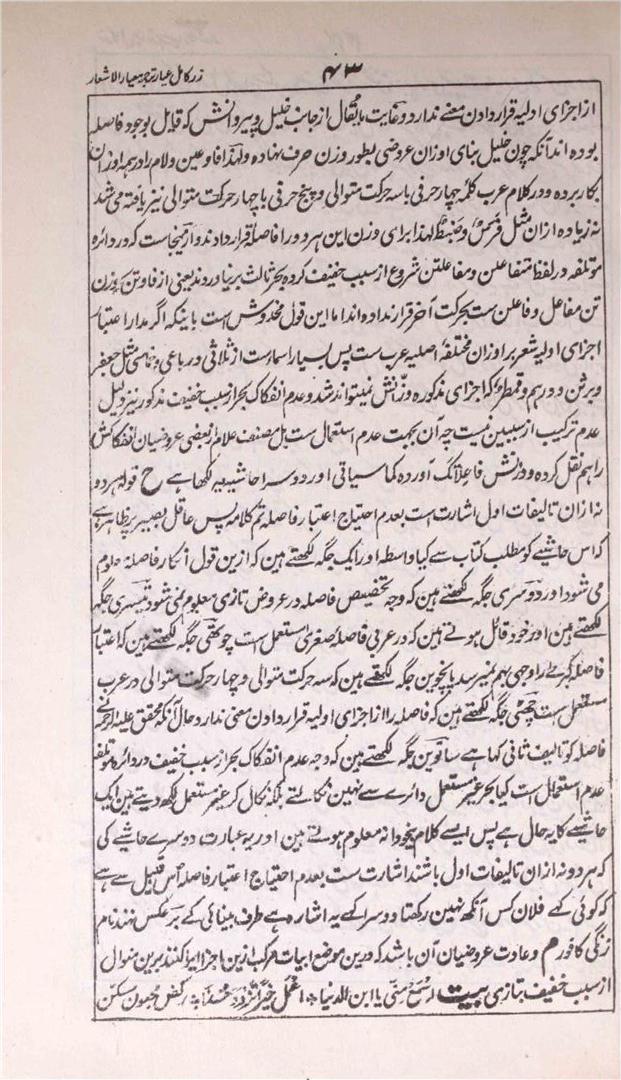 ۴۳
زر کامل عیار ترجمہ معیار الاشعار
از اجزای اولیہ قرار دادن معنے ندارد و غایت مایقال از جانب خلیل و پیروانش کہ قایل بوجود فاصلہ
بودہ اند آنکہ چون خلیل بنای اوزان عروضی بطور وزن حرف نہادہ ولہذا فا و عین و لام را در ہمہ اوزان
بکار بردہ و در کلام عرب کلمہ چہار حرفی با سہ حرکت متوالی و پنج حرفی با چہار حرکت متوالی نیز یافتہ می شد
نہ زیادہ ازان مثل و لہذا برای وزن این ہر دو را فاصلہ قرار دادند و از ینجاست کہ در دائرہ
موتلفہ در لفظ متفاعلن و مفاعلتن شروع از سبب خفیف کردہ بحر ثالث بر نیاوردند یعنی از فاوتن کہ بوزن
تن مفاعل و فاعلن ست بحرکت آخر قرار ندادہ اند اما این قول مخدوش است باینکہ اگر مدار اعتبار
اجزای اولیہ شعر بر اوزان مختلفہ اصلیہ عرب ست پس بسیار اسماست از ثلاثی و رباعی و خماسی مثل جعفر
و برثن و درہم و قمطر کہ اجزای مذکورہ وزانش نمیتواند شد و عدم انفکاک بحر از سبب خفیف مذکور نیز دلیل
عدم ترکیب از سببین نیست چہ آن بجہت عدم استعمال ست بل مصنف علام از بعضی عروضیان انفکاکش
را ہم نقل کردہ و وزنش فاعلاتک آوردہ کما سیاتی اور دوسرا حاشیہ یہ لکھا ہے ح قولہ ہر دو
نہ ازان تالیفات اول اشارت ست بعدم احتیاج اعتبار فاصلہ تم کلامہ پس عاقل بصیر پر ظاہر ہے
کہ اس حاشیے کو مطلب کتاب سے کیا واسطہ اور ایک جگہ لکھتے ہین کہ ازین قول انکار فاصلہ معلوم
می شود اور دوسری جگہ لکھتے ہین کہ وجہ تخصیص فاصلہ در عروض تازی معلوم نمی شود تیسری جگہ
لکھتے ہین اور خود قائل ہوتے ہین کہ در عربی فاصلہ صغری مستعمل ست چوتھی جگہ لکھتے ہین کہ اعتبار
فاصلہ کبری را وجہی بہم نمیرسد پانچوین جگہ لکھتے ہین کہ سہ حرکت متوالی و چہار حرکت متوالی در عرب
مستعمل ست چھٹی جگہ لکھتے ہین کہ فاصلہ را از اجزای اولیہ قرار دادن معنی ندارد و حال آنکہ محقق علیہ الرحمۃ نے
فاصلہ کو تالیف ثانی کہا ہے ساتوین جگہ لکھتے ہین کہ وجہ عدم انفکاک بحر از سبب خفیف در دائرہ موتلفہ
عدم استعمال است کیا بحر غیر مستعمل دائرے سے نہین نکالتے بلکہ نکال کر غیر مستعمل لکھ دیتے ہین ایک
حاشیے کا یہ حال ہے پس ایسے کلام بیخودانہ معلوم ہوتے ہین اور یہ عبارت دوسرے حاشیے کی
کہ ہر دو نہ ازان تالیفات اول باشند اشارت ست بعدم احتیاج اعتبار فاصلہ اس قبیل سے ہے
کہ کوئی کہے فلان کس آنکھ نہین رکھتا دوسرا کہے یہ اشارہ ہے طرف بینائی کے بر عکس نہند نام
زنگی کافور م و عادت عروضیان آن باشد کہ درین موضع ابیات مرکب ازین اجزا ایراد کنند برین منوال
از سبب خفیف بتازی بیت یا ابن الدنیا